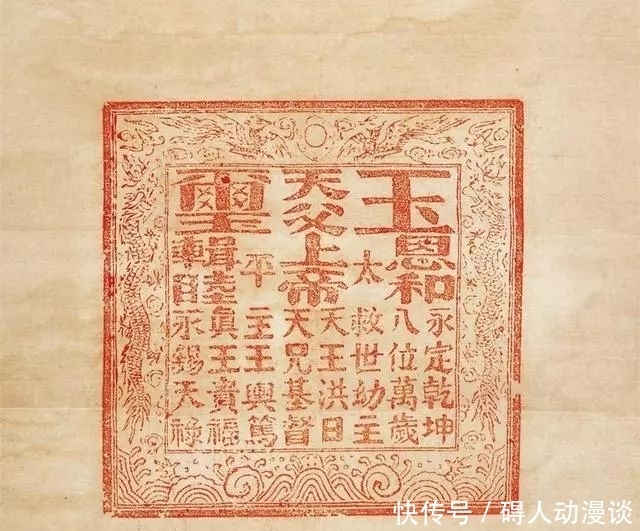 玉
恩和
永定乾坤
八位萬歲
太
救世幼主
天王洪日
天父上帝
天兄基督
平
主王輿篤
璽
輯睦
真王貴福
永錫天祿
快传号/碍人动漫谈